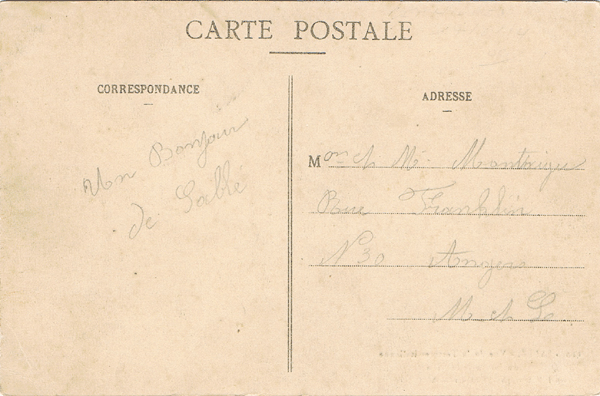 CARTE POSTALE
CORRESPONDANCE
ADRESSE
Un Bonjour
de Sablé
Mon et Me
Rue Franklin
N° 30 Angers
M et L